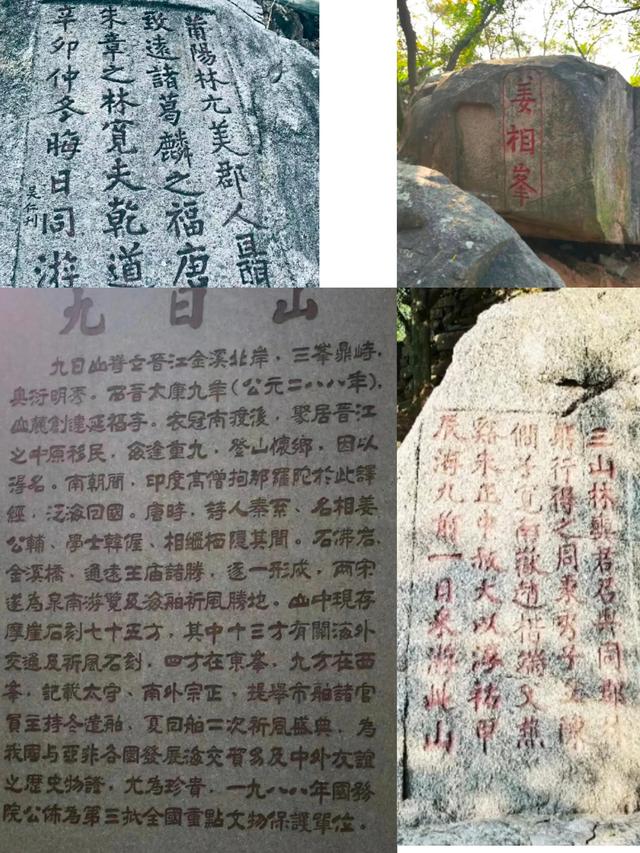 莆陽林亢美郡人聶
致遠諸葛麟之福唐
朱章之林寬夫乾道
辛卯仲冬晦日同游
姜相峯
九日山
九日山脊立晉江金溪北岸,三峯鼎峙,
奥衍明秀。西晉太康九年(公元二八八年),
山麓創建延福寺。衣冠南渡後,聚居晉江
之中原移民,每逢重九,登山懷鄉,因以
得名。南朝間,印度高僧拘那羅陀於此譯
經,泛海回國。唐時,詩人秦系、名相姜
公輔、學士韓偓、相繼栖隱其間。石佛岩、
金溪橋,通遠王庙諸勝,逐一形成,两宋
遂為泉南游覽及海舶祈風勝地。山中現存
摩崖石刻七十五方,其中十三方有關海外
交通及祈風石刻,四方在東峯,九方在西
峯,記載太守、南外宗正,提舉市舶諸官
員主持冬遣舶,夏回舶二次祈風盛典,為
我國与亞非各國發展海交貿易及中外友誼
之歷史物證,尤為珍貴,一九八八年國務
院公佈為第三批全國重點文物保護單位。
三山林君召與同郡林
行得之周東子立陳
子寬南嶽趙偕端父燕
谿朱正中敬夫以淳祐甲
辰海九前一日來游此山